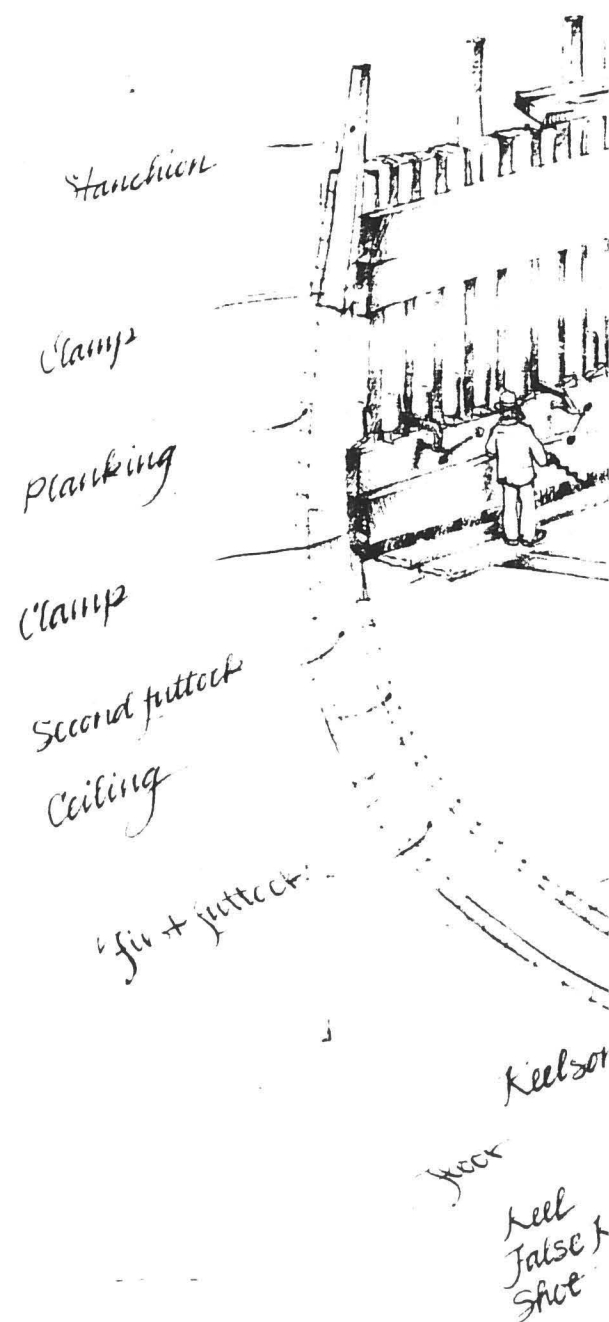 Stanchion
Clamp
Planking
Clamp
Second futtock
Ceiling
first futtock
Keelson
floor
Keel
False K
Shoe